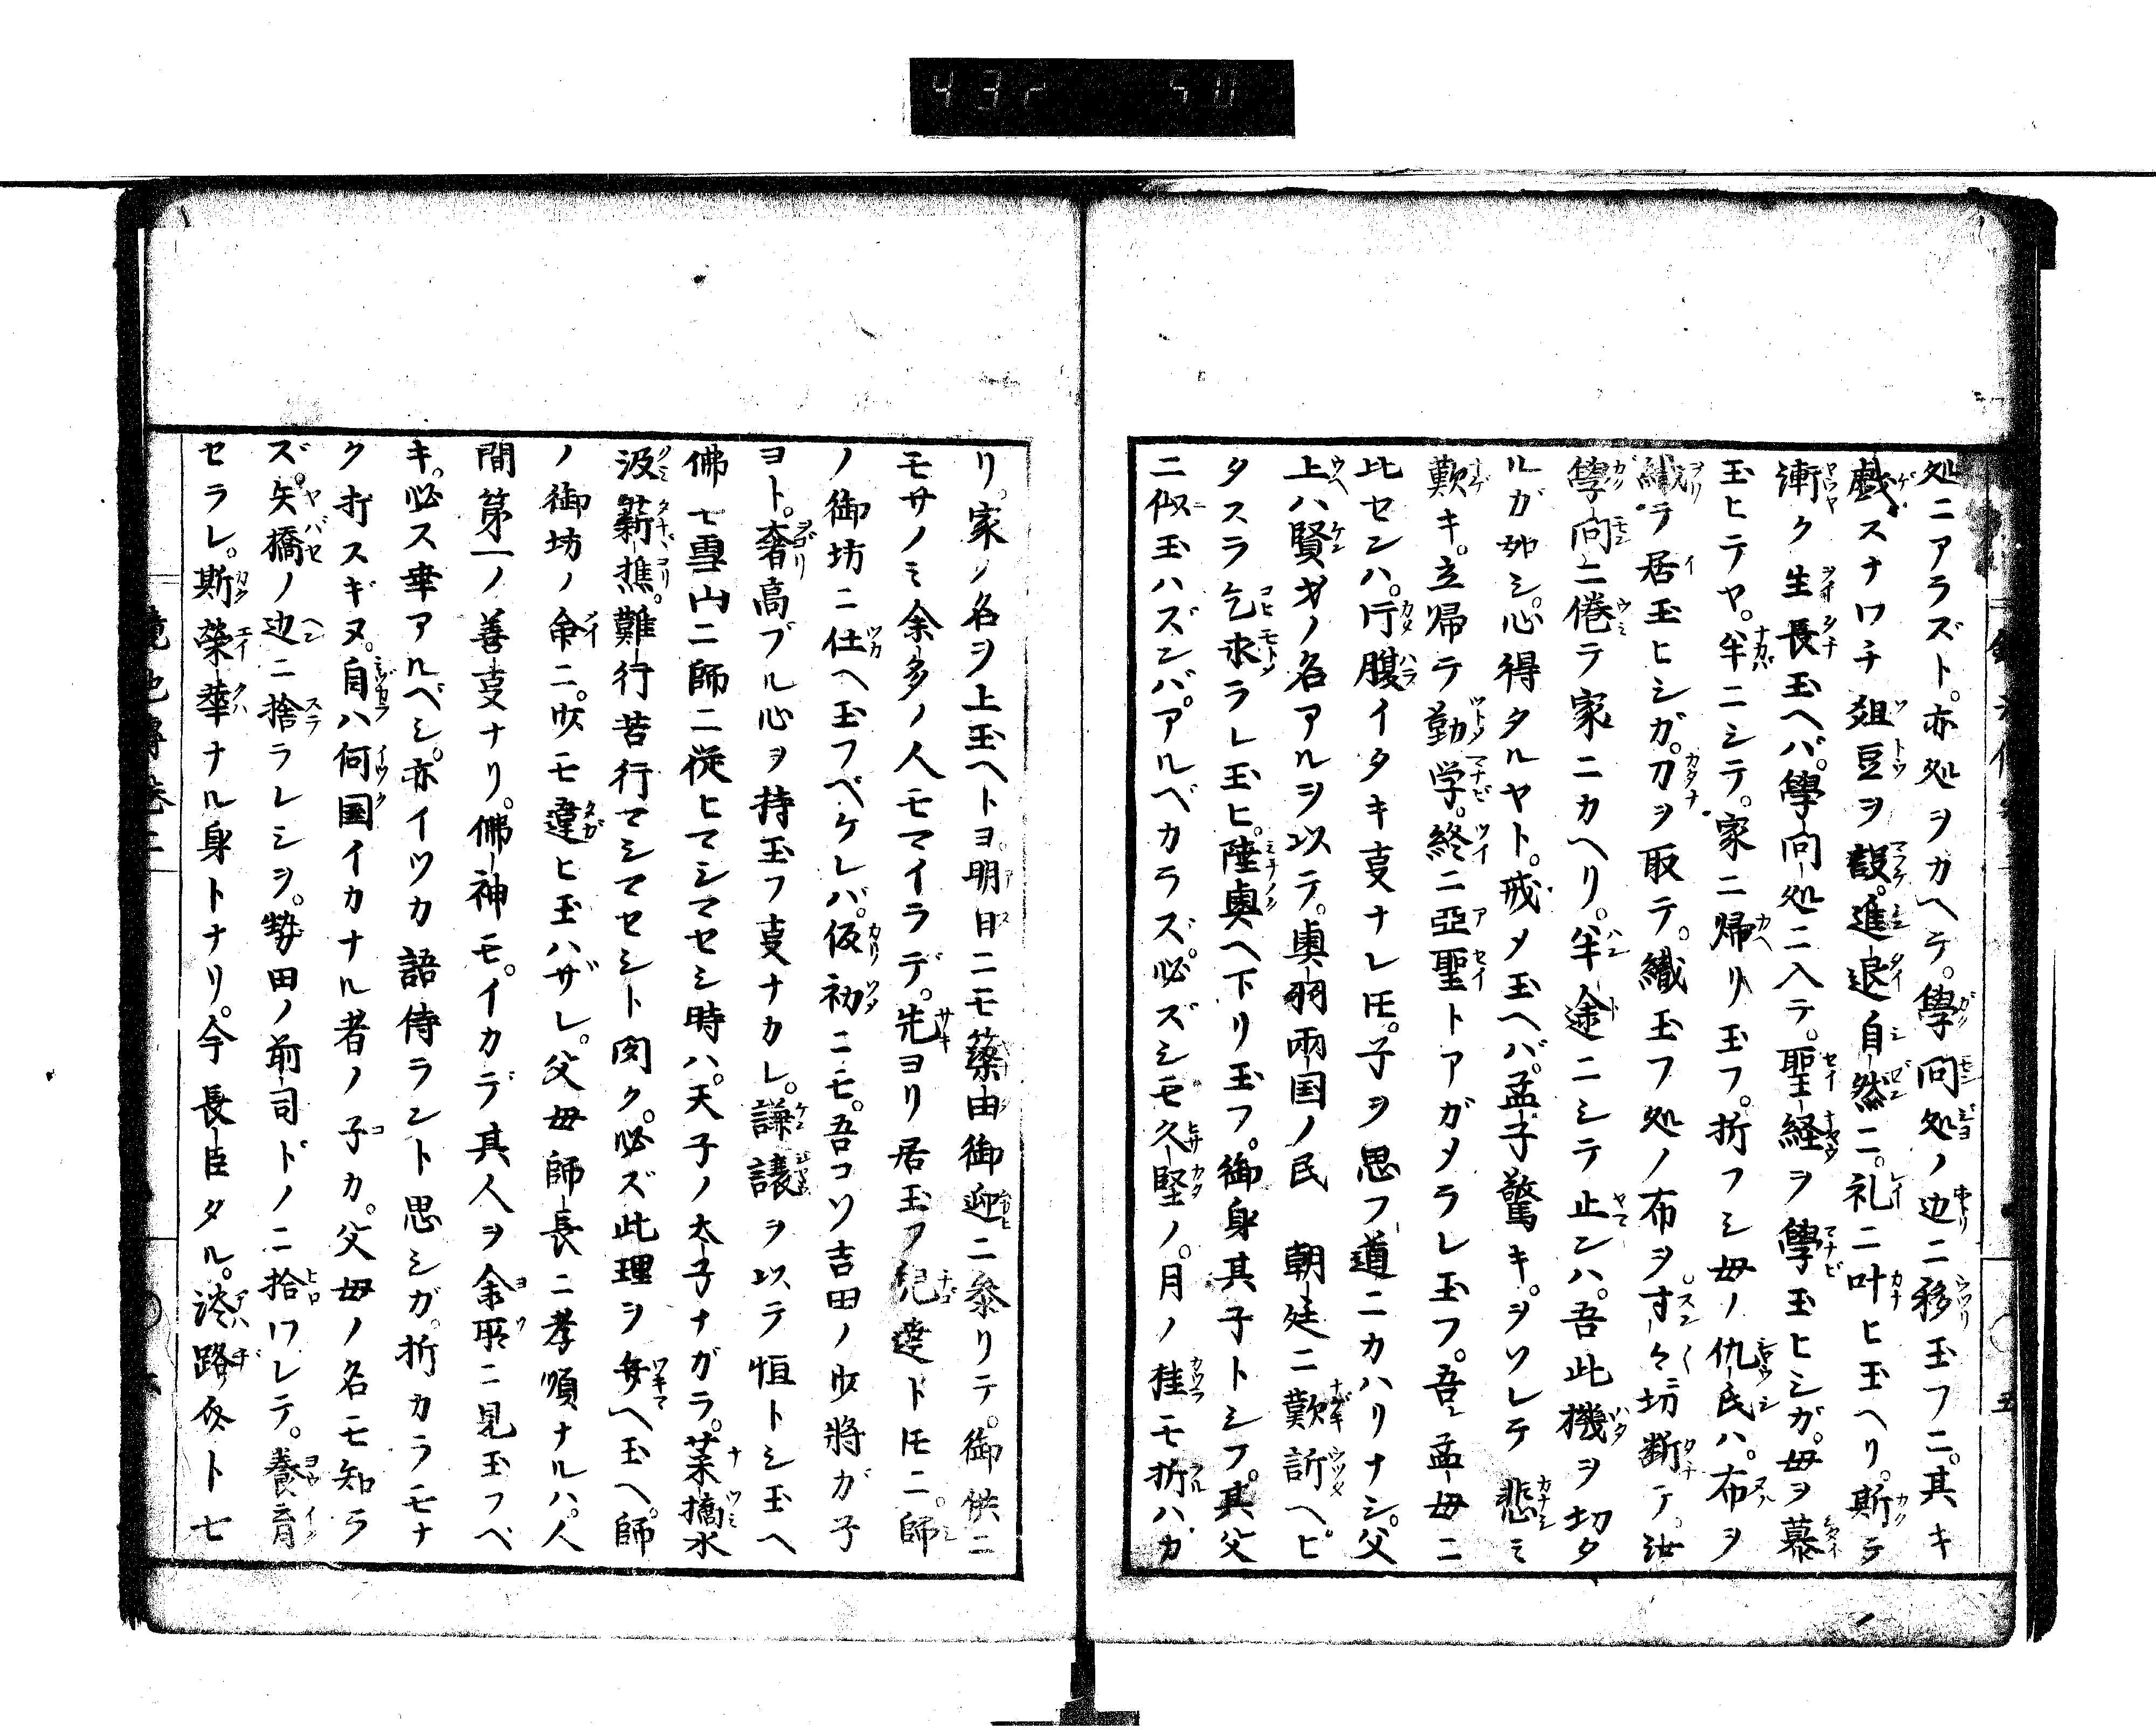 処ニアラズト。亦処ヲカヘテ。學問処ノ辺ニ移玉フニ。其キ
戯スナワチ爼豆ヲ設。進退自然ニ。礼ニ叶ヒ玉ヘリ。斯テ
漸ク生長玉ヘバ。學向処ニ入テ。聖経ヲ學玉ヒシガ。毋ヲ慕
玉ヒテヤ。半ニシテ。家ニ帰リ玉フ。折フシ毋ノ仇氏ハ。布ヲ
織テ居玉ヒシガ。刀ヲ取テ。織玉フ処ノ布ヲ寸々ニ切断テ。汝
學向ニ倦テ家ニカヘリ。半途ニシテ止ンハ。吾此機ヲ切タ
ルガ如シ。心得タルヤト。戒メ玉ヘバ。孟子驚キ。ヲソレテ悲ミ
歎キ。立帰テ勤学。終ニ亞聖トアガメラレ玉フ。吾孟母ニ
比センハ。片腹イタキ叓ナレ𪜈。子ヲ思フ道ニカハリナシ。父
上ハ賢才ノ名アルヲ以テ。奥羽兩国ノ民 朝廷ニ歎訴ヘヒ
タスラ乞求ラレ玉ヒ。陸奥ヘ下リ玉フ。御身其子トシフ。其父
ニ似玉ハズンバ。アルベカラズ。必ズシモ久堅ノ。月ノ桂モ折ハカ
リ。家ノ名ヲ上玉ヘトヨ。明日ニモ藥由御迎ニ參リテ。御供ニ
モサノミ余多ノ人モマイラデ。先ヨリ居玉フ兒達ト𪜈ニ。師
ノ御坊ニ仕ヘ玉フベケレバ。仮初ニモ。吾コソ吉田ノ少將ガ子
ヨト。奢高ブル心ヲ持玉フ叓ナカレ。謙譲ヲ以テ恒トシ玉ヘ
佛モ雪山ニ師ニ從ヒマシマセシ時ハ。天子ノ太子ナガラ。菜摘水
汲薪樵。難行苦行マシマセシト聞ク。必ズ此理ヲ弁ヘ玉ヘ。師
ノ御坊ノ命ニ。少モ違ヒ玉ハザレ。父毋師長ニ孝順ナルハ。人
間第一ノ善叓ナリ。佛神モ。イカデ其人ヲ余所ニ見玉フベ
キ。必ス幸アルベシ。亦イツカ語侍ラント思シガ。折カラモナ
ク打スギヌ。自ハ何国イカナル者ノ子カ。父毋ノ名モ知ラ
ズ。矢橋ノ辺ニ捨ラレシヲ。勢田ノ前司ドノニ拾ワレテ。養育
セラレ。斯榮華ナル身トナリ。今長臣タル。淡路夜ト七